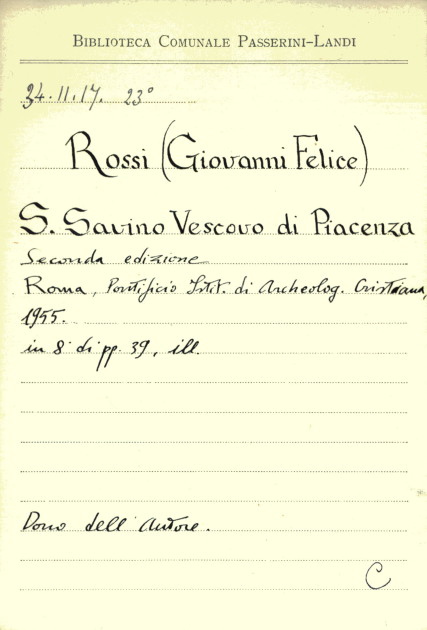 BIBLIOTECA COMUNALE PASSERINI-LANDI
34.11.17. 23°
Rossi (Giovanni Felice)
S. Savino Vescovo di Piacenza
Seconda edizione
Roma, Pontificio Istit. di Archeolog. Cristiana,
1955.
in 8° di pp. 39, ill.
Dono dell'Autore.
C